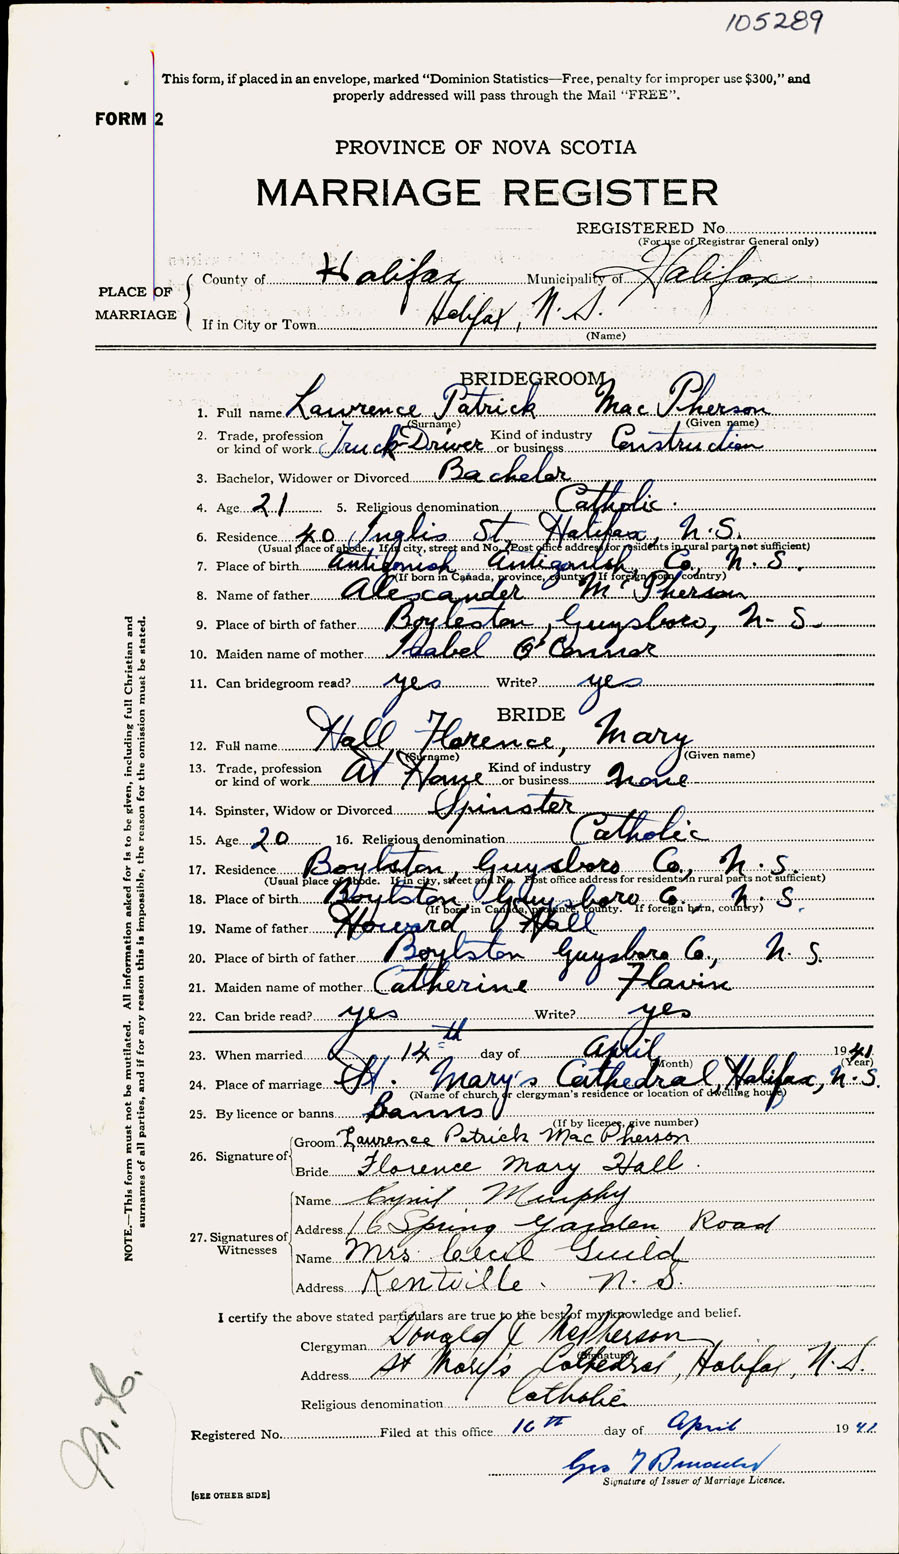 105289
This form, if placed in an envelope, marked “Dominion Statistics—Free, penalty for improper use $300,” and
properly addressed will pass through the Mail “FREE”.
FORM 2
PROVINCE OF NOVA SCOTIA
MARRIAGE REGISTER
REGISTERED No.
(For use of Registrar General only)
PLACE OF MARRIAGE
County of Halifax Municipality of Halifax
If in City or Town Halifax, N.S.
(Name)
BRIDEGROOM
1. Full name Lawrence Patrick MacPherson
(Surname) (Given name)
2. Trade, profession or kind of work Truck-Driver Kind of industry or business Construction
3. Bachelor, Widower or Divorced Bachelor
4. Age 21 5. Religious denomination Catholic.
6. Residence 40 Inglis St Halifax, N.S.
(Usual place of abode. If in city, street and No. Post office address for residents in rural parts not sufficient)
7. Place of birth Antigonish Antigonish Co., N.S.
(If born in Canada, province, county. If foreign born, country)
8. Name of father Alexander McPherson
9. Place of birth of father Boyleston, Guysboro, N-S.
10. Maiden name of mother Isabel O'Connor
11. Can bridegroom read? yes Write? yes
BRIDE
12. Full name Hall Florence, Mary
(Surname) (Given name)
13. Trade, profession or kind of work At Home Kind of industry or business none
14. Spinster, Widow or Divorced Spinster
15. Age 20 16. Religious denomination Catholic
17. Residence Boylston, Guysboro Co., N.S.
(Usual place of abode. If in city, street and No. Post office address for residents in rural parts not sufficient)
18. Place of birth Boylston Guysboro Co. N.S.
(If born in Canada, province, county. If foreign born, country)
19. Name of father Howard Hall
20. Place of birth of father Boylston Guysboro Co., N.S.
21. Maiden name of mother Catherine Flavin
22. Can bride read? yes Write? yes
23. When married 14th day of April 1941
(Month) (Year)
24. Place of marriage St. Mary's Cathedral, Halifax, N.S.
(Name of church or clergyman's residence or location of dwelling house)
25. By licence or banns Banns
(If by licence, give number)
26. Signature of Groom Lawrence Patrick MacPherson
Bride Florence Mary Hall.
27. Signatures of Witnesses
Name Cyril Murphy
Address 16 Spring Garden Road
Name Mrs. Cecil Guild
Address Kentville. N.S.
I certify the above stated particulars are true to the best of my knowledge and belief.
Clergyman Donald McPherson
(Signature)
Address St Mary's Cathedral, Halifax, N.S.
Religious denomination Catholic
Registered No. Filed at this office 16th day of April 1941
Geo
Signature of Issuer of Marriage Licence.
[SEE OTHER SIDE]
NOTE.—This form must not be mutilated. All information asked for is to be given, including full Christian and
surnames of all parties, and if for any reason this is impossible, the reason for the omission must be stated.